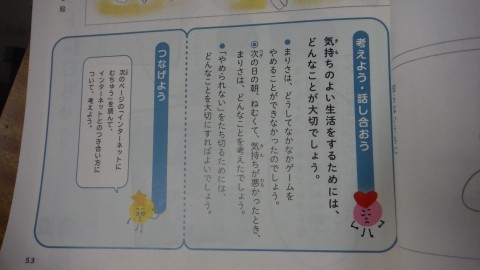 考えよう・話し合おう
気持ちのよい生活をするためには、
どんなことが大切でしょう。
●まりさは、どうしてなかなかゲームを
やめることができなかったのでしょう。
●次の日の朝、ねむくて、気持ちが悪かったとき、
まりさは、どんなことを考えたでしょう。
●「やめられない」をたち切るためには、
どんなことを大切にすればよいでしょう。
つなげよう
次のページの「インターネットに
むちゅう」を読んで、
インターネットとのつき合い方に
ついて、考えよう。
53